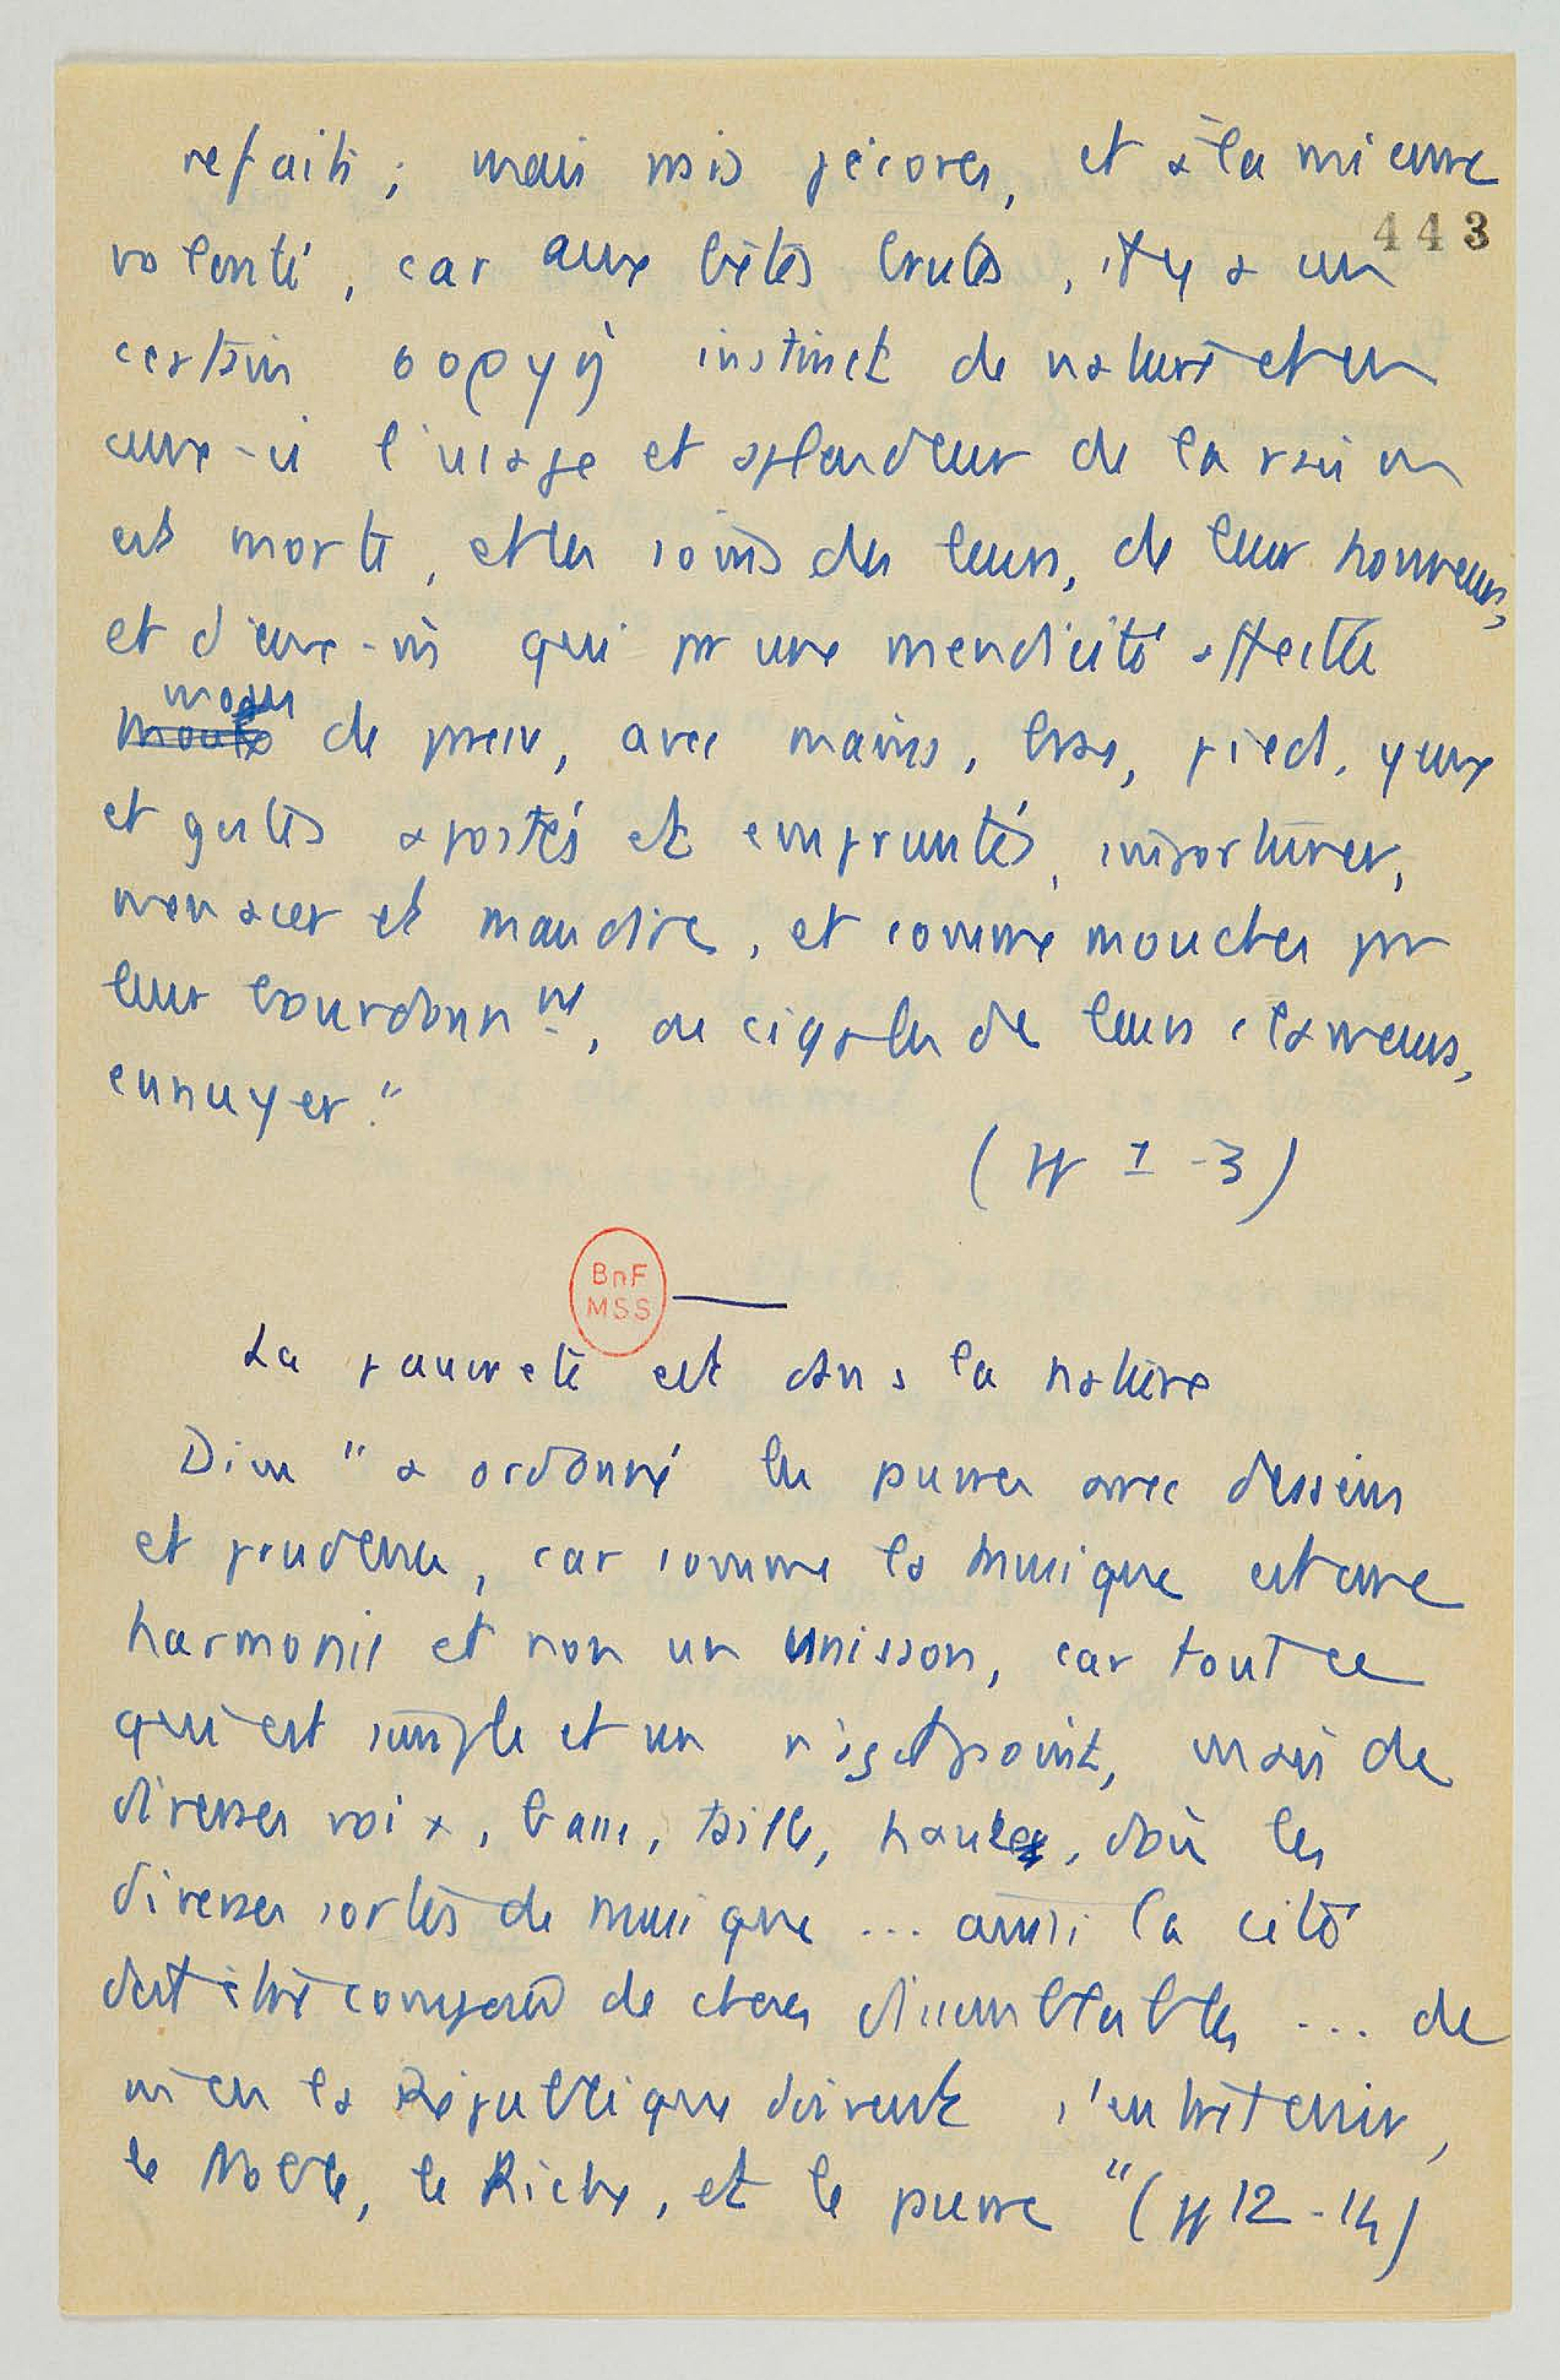 refaits ; mais nos pécores, et à la mienne
443
volonté, car aux bêtes brutes, il y a un
certain οορyὴ instinct de nature et en
ceux-ci l'usage et splendeur de la raison
est morte, et les soins des leurs, de leur honneur,
et d'eux-m̂s qui pr une mendicité affectée
de preuv, avec mains, bras, pieds, yeux
et gestes apostés et empruntés, importuner,
menacer et maudire, et comme mouches pr
leur bourdonnnt, ou cigales de leurs clameurs,
ennuyer."
(pp 1-3)
BnF
MSS
La pauvreté est dans la nature
Dieu "a ordonné les pauvres avec desseins
et prudence, car comme la musique est une
harmonie et non un unisson, car tout ce
qui est simple et un n'agit point, mais de
diverses voix, basse, taille, hautes, d'où les
diverses sortes de musique ... ainsi la cité
doit être composée de choses dissemblables ... de
m̂ en la République doivent s'entretenir,
le Noble, le Riche, et le pauvre" (pp 12-14)